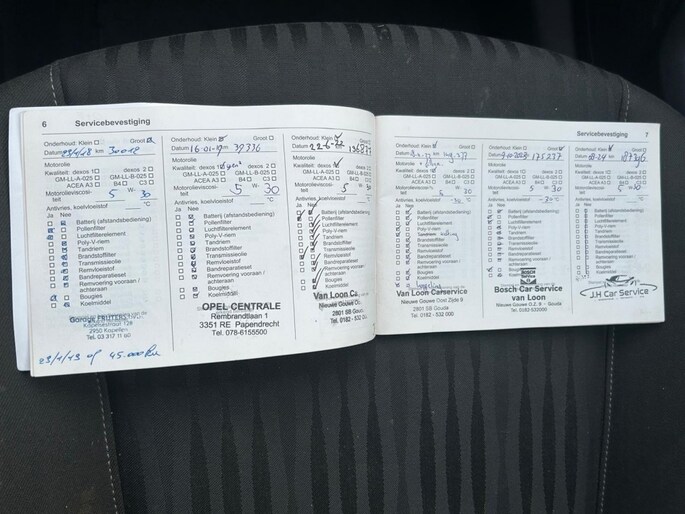 6 Servicebevestiging
Onderhoud: Klein Groot
Datum km 30018
Motorolie
Kwaliteit: dexos 1 dexos 2
GM-LL-A-025 GM-LL-B-025
ACEA A3 B4 C3
Motorolieviscosi-
teit 5 W- 30
Antivries, koelvloeistof °C
Ja Nee
Batterij (afstandsbediening)
Pollenfilter
Luchtfilterelement
Poly-V-riem
Tandriem
Brandstoffilter
Transmissieolie
Remvloeistof
Bandreparatieset
Remvoering vooraan /
achteraan
Bougies
Koelmiddel
Kapelsestraat 128
2950 Kapellen
Tel. 03.317 11
45.000 km
Onderhoud: Klein Groot
Datum 16-01-19 km 39336
Motorolie
Kwaliteit: dexos 1 dexos 2
GM-LL-A-025 GM-LL-B-025
ACEA A3 B4 C3
Motorolieviscosi-
teit 5 W- 30
Antivries, koelvloeistof °C
Ja Nee
Batterij (afstandsbediening)
Pollenfilter
Luchtfilterelement
Poly-V-riem
Tandriem
Brandstoffilter
Transmissieolie
Remvloeistof
Bandreparatieset
Remvoering vooraan /
achteraan
Bougies
Koelmiddel
OPEL CENTRALE
Rembrandtlaan 1
3351 RE Papendrecht
Tel. 078-6155500
Onderhoud: Klein Groot
Datum 22-6-22
Motorolie
Kwaliteit: dexos 1 dexos 2
GM-LL-A-025 GM-LL-B-025
ACEA A3 B4 C3
Motorolieviscosi-
teit 5 W- 30
Antivries, koelvloeistof °C
Ja Nee
Batterij (afstandsbediening)
Pollenfilter
Luchtfilterelement
Poly-V-riem
Tandriem
Brandstoffilter
Transmissieolie
Remvloeistof
Bandreparatieset
Remvoering vooraan /
achteraan
Bougies
Koelmiddel
Van Loon Ca
Nieuwe Gouwe
2801 SB Gouda
Tel. 0182 - 532
Servicebevestiging 7
Onderhoud: Klein Groot
Datum
Motorolie
Kwaliteit: dexos 1 dexos 2
GM-LL-A-025 GM-LL-B-025
ACEA A3 B4 C3
Motorolieviscosi-
teit 5 30
Antivries, koelvloeistof °C
Ja Nee
Batterij (afstandsbediening)
Pollenfilter
Luchtfilterelement
Poly-V-riem
Tandriem
Brandstoffilter
Transmissieolie
Remvloeistof
Bandreparatieset
Remvoering vooraan /
achteraan
Bougies
Van Loon Carservice
Nieuwe Gouwe Oost Zijde 9
2801 SB Gouda
Tel. 0182 - 532 000
Onderhoud: Klein Groot
Datum 175277
Motorolie
Kwaliteit: dexos 1 dexos 2
GM-LL-A-025 GM-LL-B-025
ACEA A3 B4 C3
Motorolieviscosi-
teit 5 W- 30
Antivries, koelvloeistof °C
Ja Nee
Batterij (afstandsbediening)
Pollenfilter
Luchtfilterelement
Poly-V-riem
Tandriem
Brandstoffilter
Transmissieolie
Remvloeistof
Bandreparatieset
Remvoering vooraan /
achteraan
Bougies
BOSCH
Service
Bosch Car Service
van Loon
Nieuwe Gouwe O.Z. 9 - Gouda
Tel. 0182-532000
Onderhoud: Klein Groot
Datum
Motorolie
Kwaliteit: dexos 1 dexos 2
GM-LL-A-025 GM-LL-B-025
ACEA A3 B4 C3
Motorolieviscosi-
teit 5
Antivries, koelvloeistof °C
Ja Nee
Batterij (afstandsbediening)
Pollenfilter
Luchtfilterelement
Poly-V-riem
Tandriem
Brandstoffilter
Transmissieolie
Remvloeistof
Bandreparatieset
Remvoering vooraan /
achteraan
Bougies
J.H Car Service